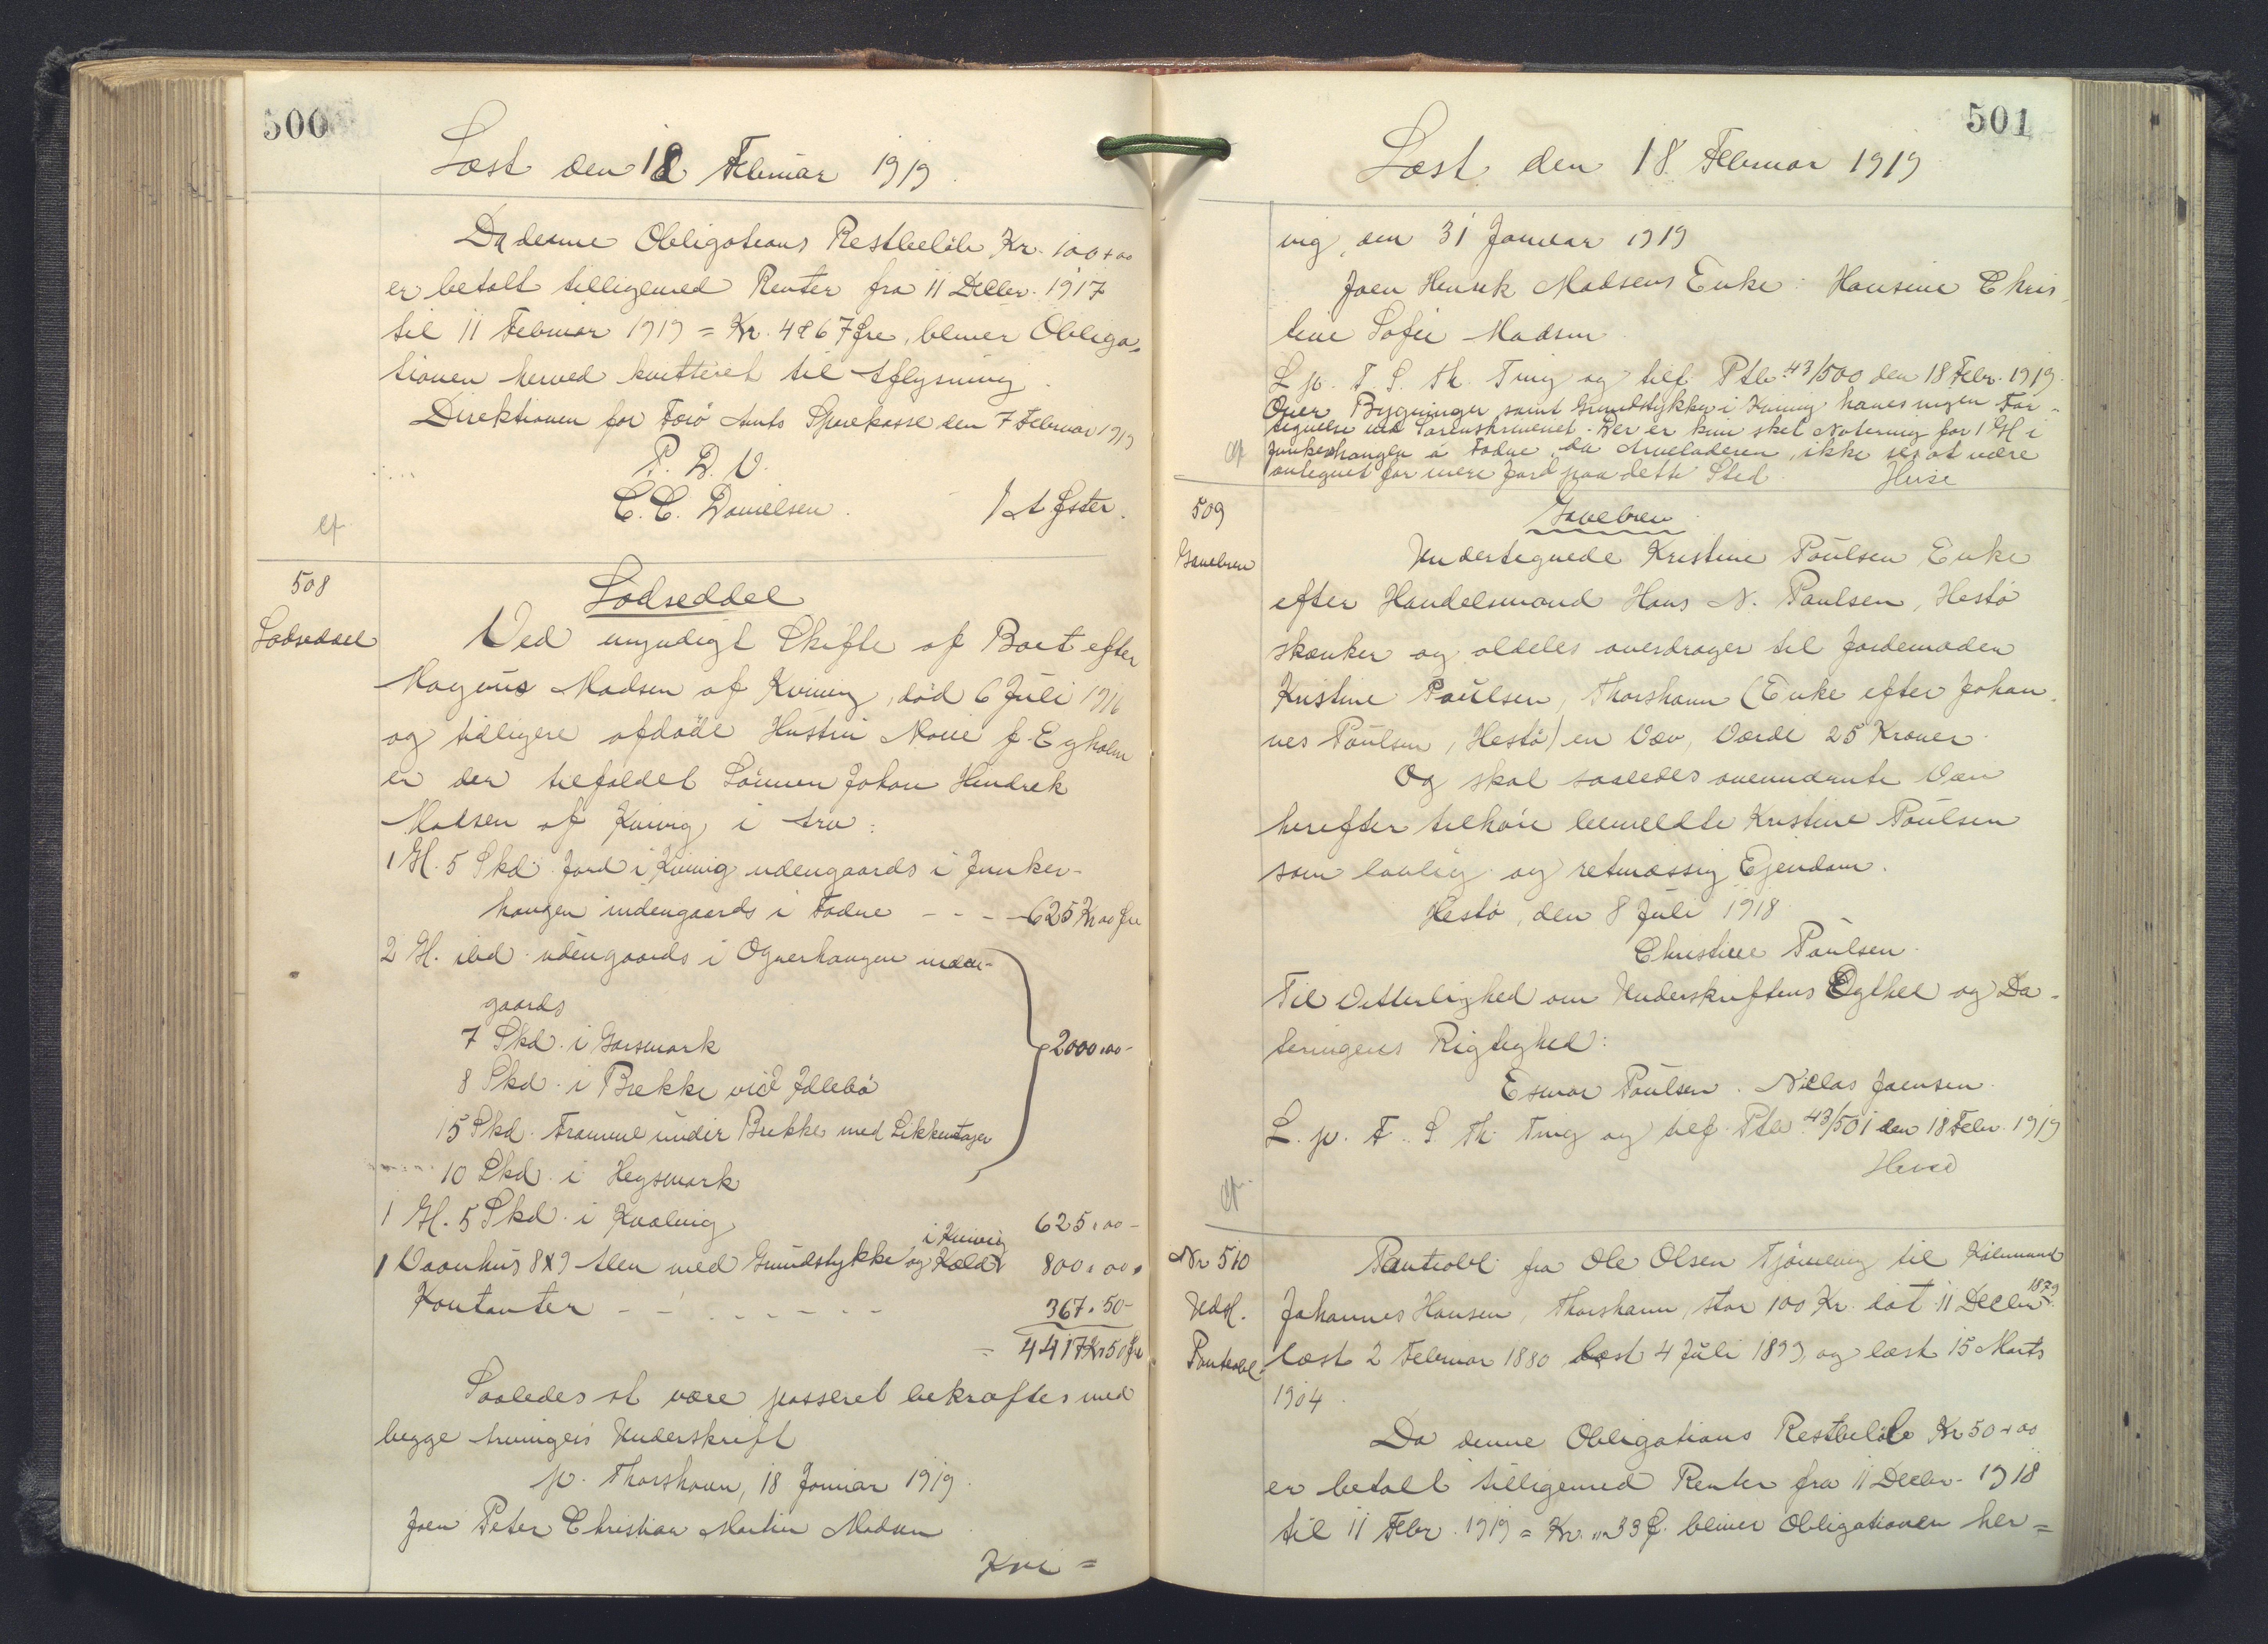 500
Læst den 18 Februar 1919.
Da denne Obligations Restbeløb Kr. 100+00
er betalt tilligemed Renter fra 11 Decbr. 1917
til 11 Februar 1919 = Kr. 4 67 Øre, bliver Obliga-
tionen herved kvitteret til Aflysning.
Direktionen for Færø Amts Sparekasse den 7 Februar 1919
P. D. V.
C. C. Danielsen. J A Øster.
cf
508
Lodseddel
Lodseddel
Ved myndigt Skifte af Boet efter
Magnus Madsen af Kvivig, død 6 Juli 1916
og tidligere afdøde Hustru Marie f. Egholm
er der tilfaldet Sønnen Johan Hendrek
Madsen af Kvivig i Arv:
1 Gl. 5 Skd. Jord i Kvivig udengaards i Junker-
haugen indengaards i Fodne - - - 625 Kr 00 Øre
2 Gl. ibd. udengaards i Ognerhaugen inden-
gaards
7 Skd. i Garsmark
8 Skd. i Brekke vid Idlebø
2000,00-
15 Skd. Framme under Brekke med Likkentajer
10 Skd. i Heysmark
1 Gl. 5 Skd. i Kvalvig 625,00-
i Kvivig
1 Vaanhus 8x9 Alen med Grundstykke og Kælder 800,00,
Kontanter - - - - - - 367.50-
= 4417 Kr 50 Øre
Saaledes at være passeret bekræftes med
begge Arvingers Underskrift
p. t. Thorshavn, 18 Januar 1919.
Joen Peter Christian Martin Madsen
Kvi=
501
Læst den 18. Februar 1919
vig, den 31 Januar 1919
Joen Henrik Madsens Enke: Hansine Chris
tine Sofie Madsen
L. p. F. S. Th. Ting og tilf. Ptb. 43/500 den 18 Febr. 1919.
Over Bygninger samt Grundstykker i Kvivig haves ingen For-
tegnelse ved Sorenskriveriet. Der er kun sket Notering for 1 Gl i
Junkerhaugen á Fodne, da Arveladeren ikke ses at være
antegnet for mere Jord paa dette Sted. Heise
cf
509
Gavebrev
Gavebrev
Undertegnede Kristine Poulsen Enke
efter Handelsmand Hans N. Paulsen, Hestø
skænker og aldeles overdrager til Jordemoder
Kristine Paulsen, Thorshavn (Enke efter Johan-
nes Poulsen, Hestø) en Væv, Værdi 25 Kroner.
Og skal saaledes ovennævnte Væv
herefter tilhøre bemeldte Kristine Poulsen
som lovlig og retmæssig Ejendom.
Hestø, den 8 Juli 1918.
Christine Paulsen.
Til Vitterlighed om Underskriftens Ægthed og Da-
teringens Rigtighed:
Esmar Poulsen. Niclas Joensen.
L. p. F. S. Th. Ting og tilf. Ptb. 43/501 den 18 Febr. 1919
Heise
cf.
Nr 510
Udsl.
Pantobl.
Pantobl. fra Ole Olsen Tjørnevig til Kjøbmand
Johannes Hansen, Thorshavn, stor 100 Kr. dat. 11 Decbr 1879
læst 2 Februar 1880 læst 4 Juli 1899 og læst 15 Marts
1904.
Da denne Obligations Restbeløb Kr 50+00
er betalt tilligemed Renter fra 11 Decbr. 1918
til 11 Febr. 1919 = Kr. „ 33 Ø. bliver Obligationen her=